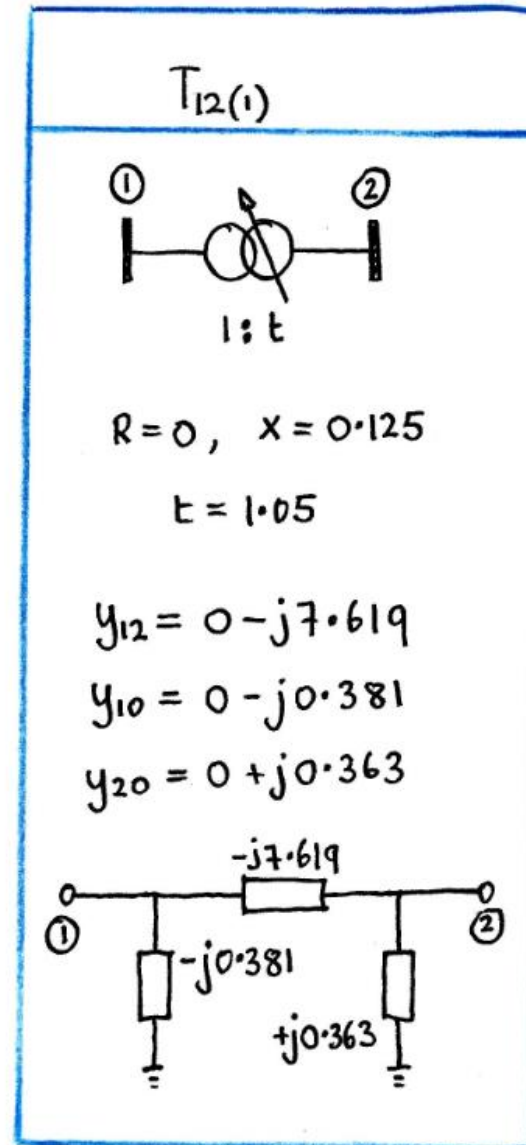 T12(1)
① ②
1:t
R = 0, X = 0·125
t = 1·05
y12 = 0 - j7·619
y10 = 0 - j0·381
y20 = 0 + j0·363
-j7·619
① ②
-j0·381
+j0·363